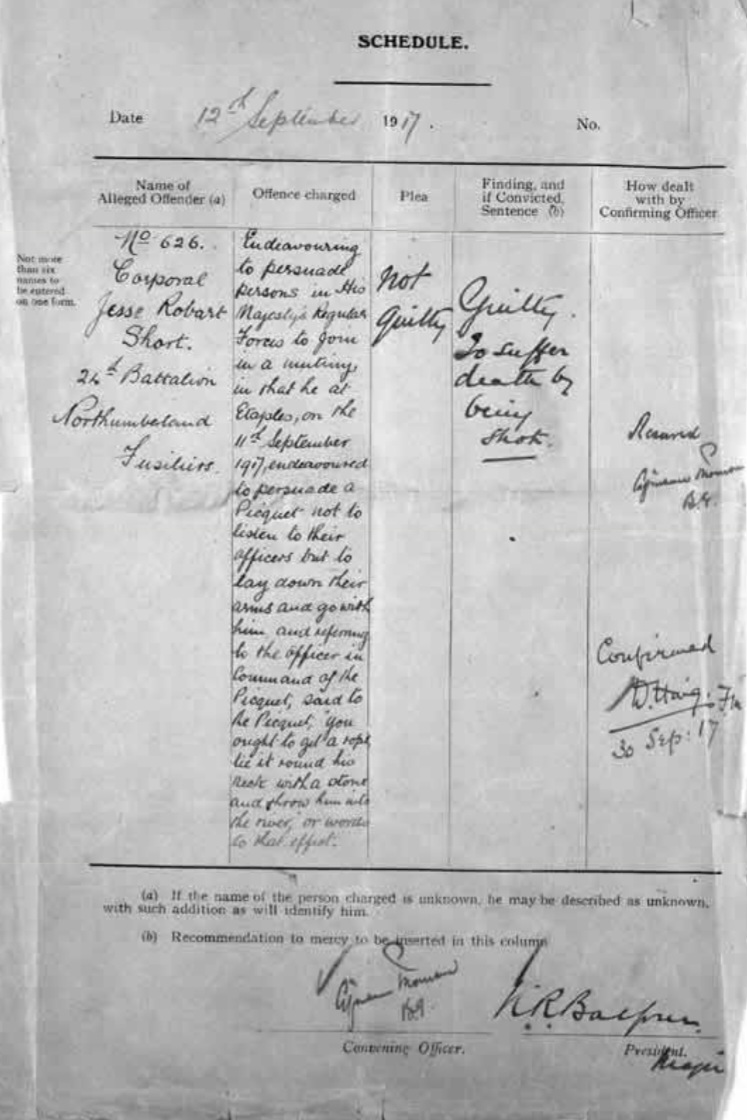 SCHEDULE.
Date 12th September 1917. No.
Name of
Alleged Offender (a)
Offence charged
Plea
Finding, and
if Convicted,
Sentence (b)
How dealt
with by
Confirming Officer
Not more
than six
names to
be entered
on one form.
No 626.
Corporal
Jesse Robart
Short.
24th Battalion
Northumberland
Fusiliers.
Endeavouring
to persuade
persons in His
Majesty's Regular
Forces to join
in a mutiny,
in that he at
Etaples, on the
11th September
1917, endeavoured
to persuade a
Picquet not to
listen to their
officers but to
lay down their
arms and go with
him, and referring
to the officer in
Command of the
Picquet, said to
the Picquet, "you
ought to get a rope,
tie it round his
neck with a stone
and throw him into
the river," or words
to that effect.
Not
Guilty
Guilty.
To suffer
death by
being
shot.
Reserved
B.G.
Confirmed
D. Haig. F.M.
30 Sep: 17
(a) If the name of the person charged is unknown, he may be described as unknown,
with such addition as will identify him.
(b) Recommendation to mercy to be inserted in this column
B.G.
N.R. Balfour
Convening Officer. President.
Major